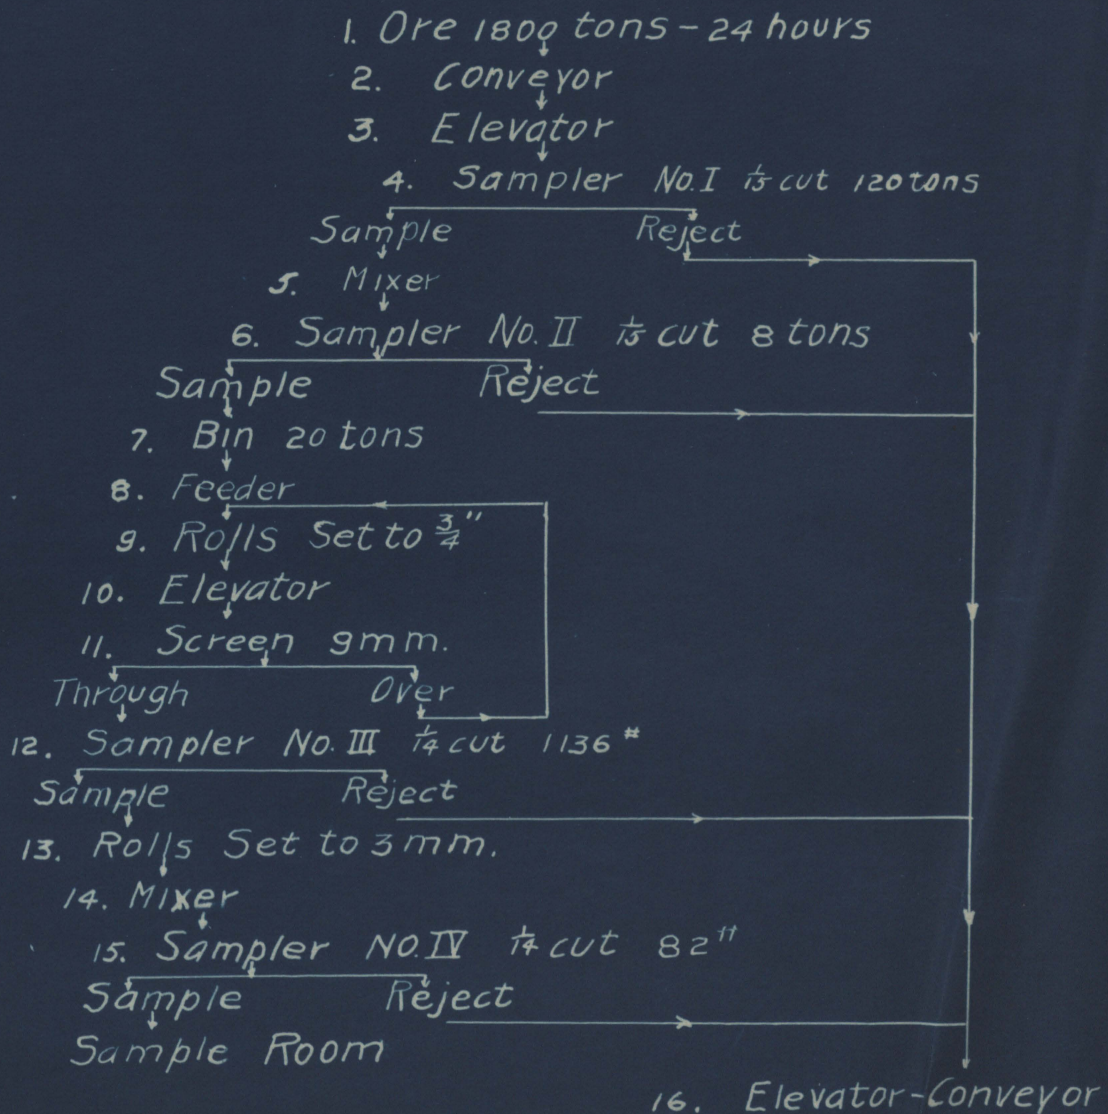 1. Ore 1800 tons - 24 hours
2. Conveyor
3. Elevator
4. Sampler No. I 1/15 cut 120 tons
Sample Reject
5. Mixer
6. Sampler No. II 1/15 cut 8 tons
Sample Reject
7. Bin 20 tons
8. Feeder
9. Rolls Set to 3/4"
10. Elevator
11. Screen 9mm.
Through Over
12. Sampler No. III 1/14 cut 1136 #
Sample Reject
13. Rolls Set to 3mm.
14. Mixer
15. Sampler NO. IV 1/14 cut 82 #
Sample Reject
Sample Room
16. Elevator-Conveyor